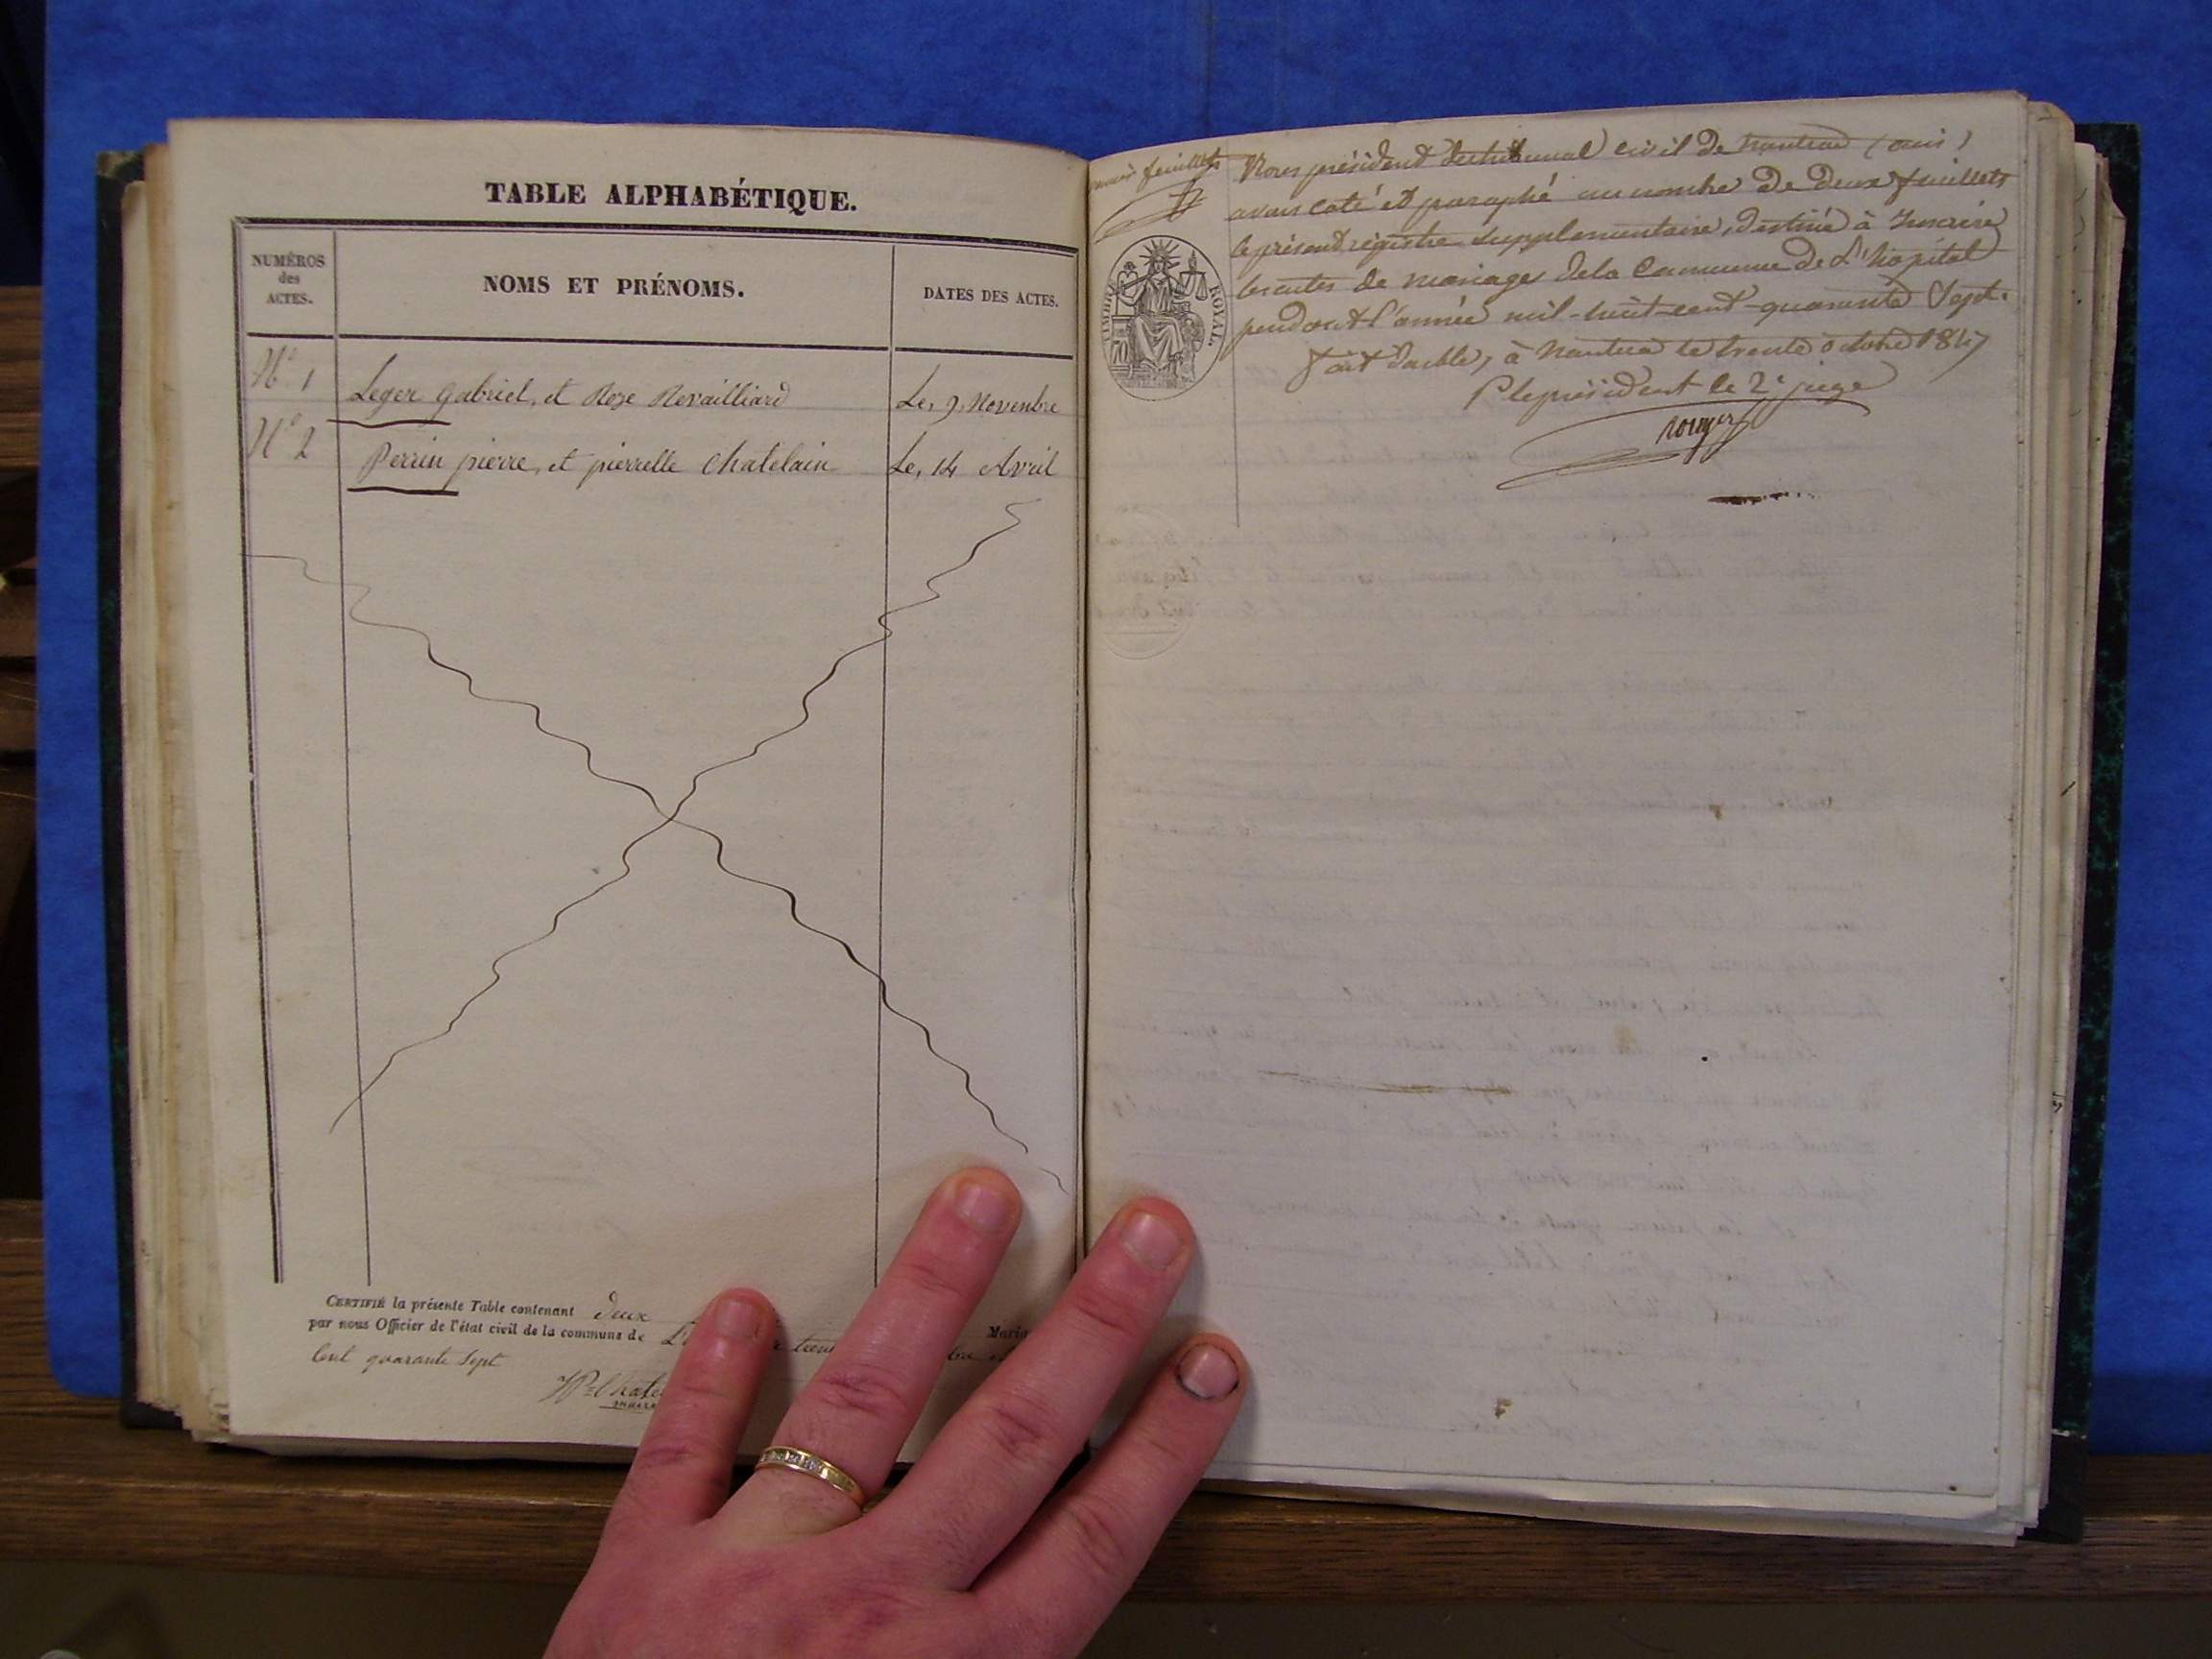 TABLE ALPHABÉTIQUE.
NUMÉROS
des
ACTES.
NOMS ET PRÉNOMS.
DATES DES ACTES.
N° 1 Leger gabriel, et Roze Revailliard Le, 9, Novembre
N° 2 Perrin pierre, et pierrette Chatelain Le, 14 Avril
CERTIFIÉ la présente Table contenant deux
par nous Officier de l'état civil de la commune de
Cent quarante Sept
feuillets
TIMBRE ROYAL.
Nous président du tribunal civil de Nantua (ain)
avons coté et paraphé au nombre de deux feuillets
le présent régistre supplementaire, destiné à Inscrire
les actes de mariage de la Commune de L'hôpital
pendant l'année mil-huit-cent-quarante Sept.
fait double, à Nantua le trente octobre 1847
P le président le 2e juge